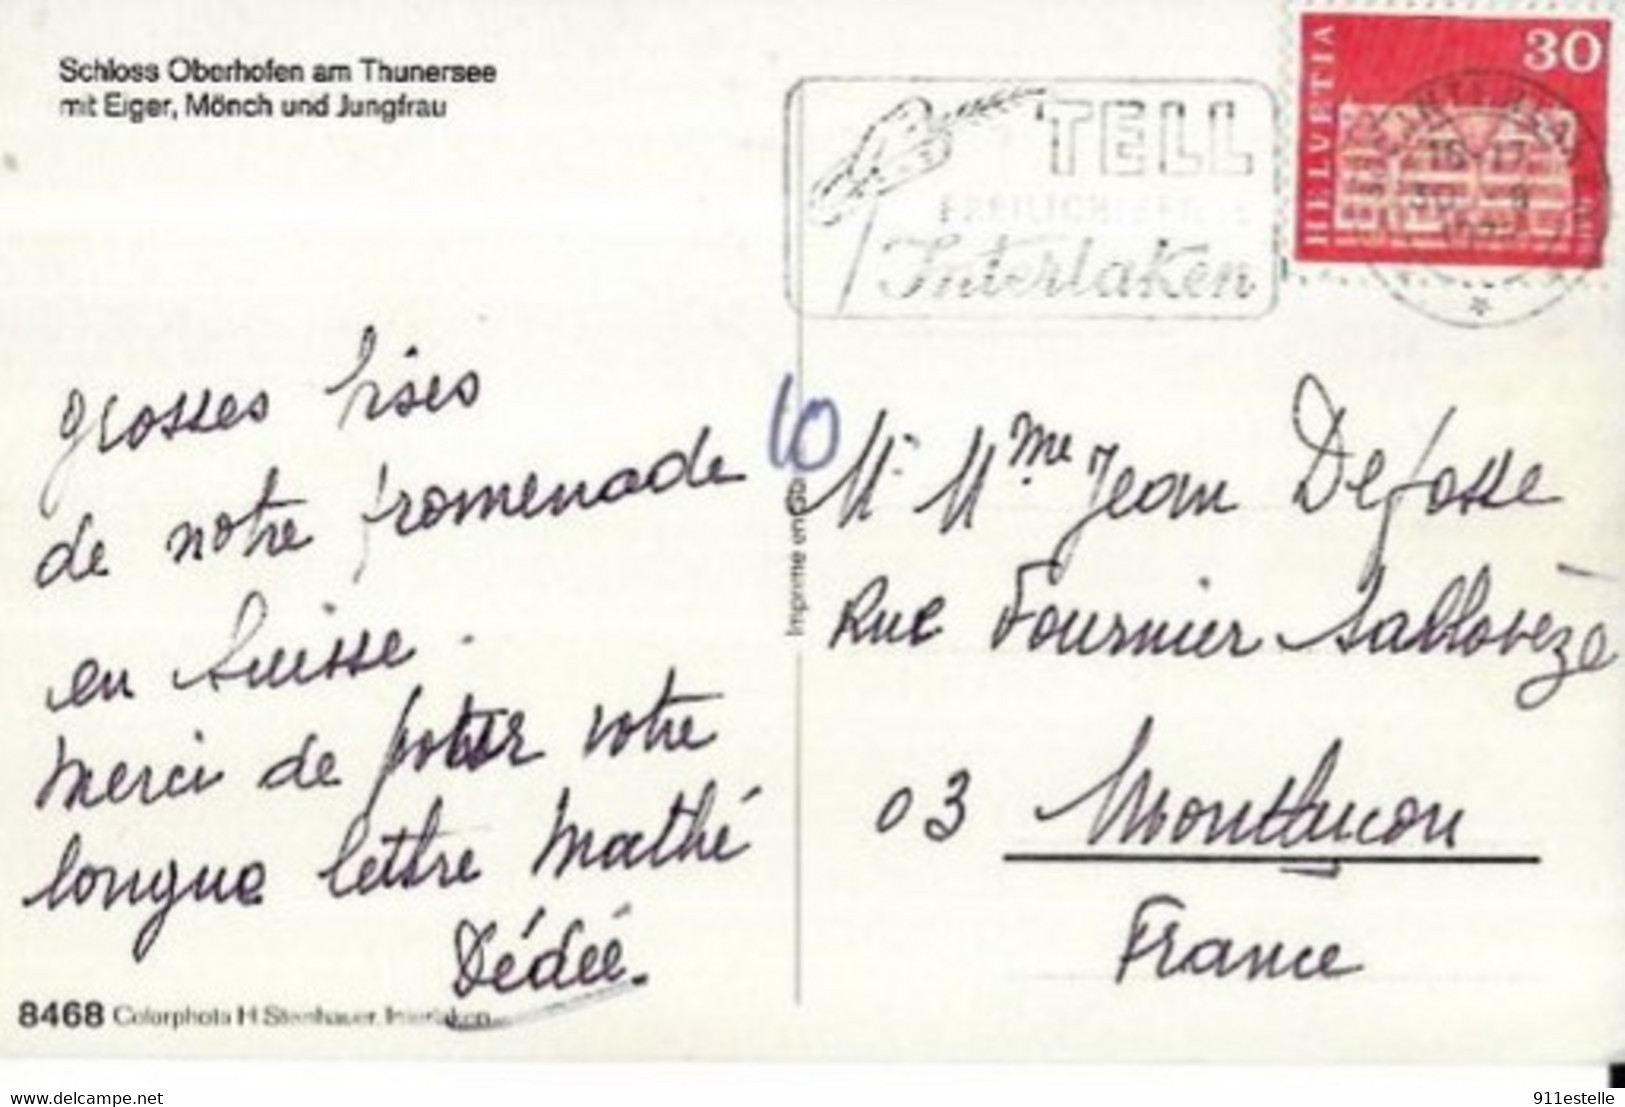 Schloss Oberhofen am Thunersee
mit Eiger, Mönch und Jungfrau
TELL
Interlaken
HELVETIA
30
16-17
grosses bises
de notre promenade
en Suisse.
Merci de votre
longue lettre Mathé
Dédée.
10
Imprimé en
Mr Mme Jean Defosse
Rue Fournier Sarlovèze
03 Montluçon
France
8468 Colorphoto H. Steinhauer, Interlaken
www.delcampe.net
911estelle